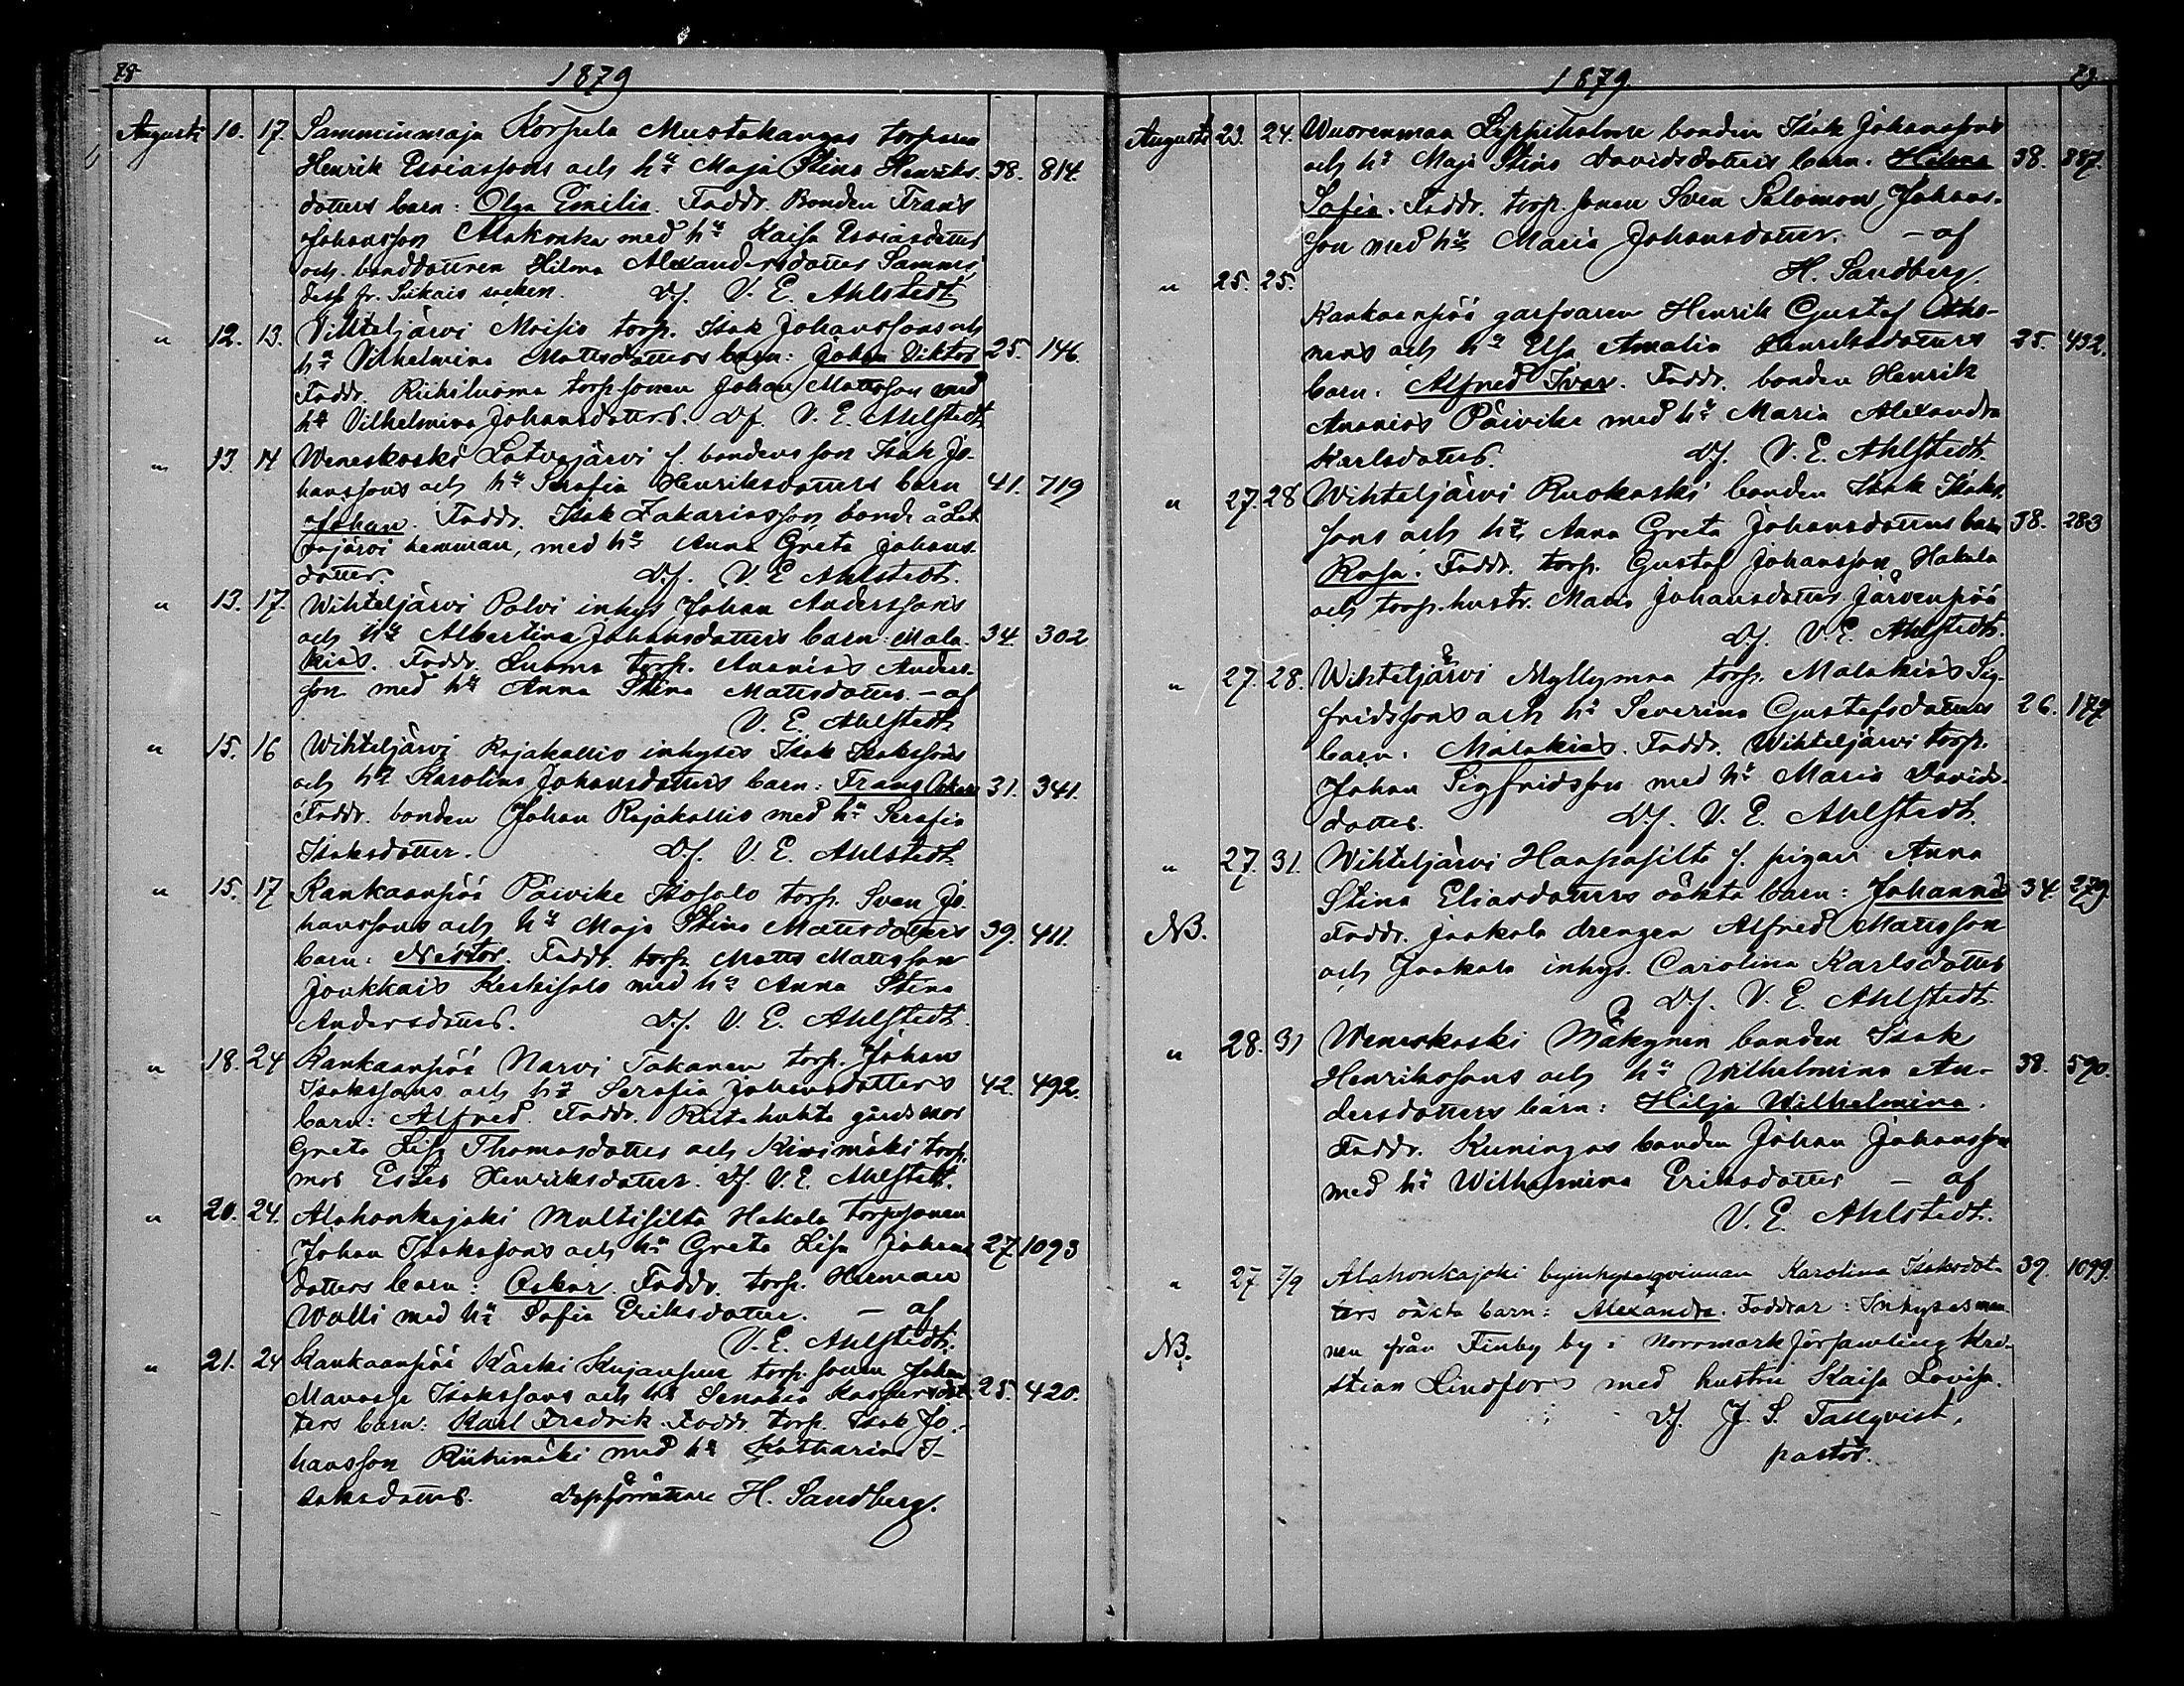 78
1879
Augusti 10. 17. Samminmaja Korpela Mustakangas torparen
Henrik Esaiassons och h:u Maja Stina Henriks- 38. 814.
dotters barn: Olga Emilia. Faddr. Bonden Frans
Johansson Alakonka med h:u Kaisa Esaiasdotter
och bonddottren Hilma Alexandersdotter Sammi,
dess fr. Siikais socken. Df. V. E. Ahlstedt
" 12. 13. Vihteljärvi Moisio torp. Isak Johanssons och
h:u Vilhelmina Mattsdotters barn: Johan Viktor 25. 146.
Faddr. Riihiluoma torpsonen Johan Mattsson med
h:u Vilhelmina Johansdotter. Df. V. E. Ahlstedt
" 13. 14 Weneskoski Latvajärvi f. bondens son Isak Jo-
hanssons och h:u Serafia Henriksdotters barn 41. 719
Johan. Faddr. Isak Zakariasson, bonde å Lat
vajärvi hemman, med h:u Anna Greta Johans-
dotter. Df. V. E Ahlstedt.
" 13. 17. Wihteljärvi Palvi inhys Johan Anderssons
och h:u Albertina Johansdotters barn: Mala- 34. 302
kias. Faddr. Luoma torp. Ananias Anders-
son med h:u Anna Stina Mattsdotter. - af
V. E. Ahlstedt
" 15. 16 Wihteljärvi Rajakallio inhyses Isak Isakssons
och h:u Karolina Johansdotters barn: Frans Oskar 31. 341.
Faddr. bonden Johan Rajakallio med h:u Serafia
Isaksdotter. Df. V. E. Ahlstedt
" 15. 17 Kankaanpää Päivike Isosalo torp. Sven Jo-
hanssons och h:u Maja Stina Mattsdotters 39. 411.
barn: Nestor. Faddr. torp. Matts Mattsson
Joukkais Keskisalo med h:u Anna Stina
Andersdotter. Df. V. E. Ahlstedt.
" 18. 24 Kankaanpää Narvi Takanen torp. Johan
Isakssons och h:u Serafia Johansdotters 42. 492.
barn: Alfred. Faddr. Riitahuhta gårdsmor
Greta Lisa Thomasdotter och Kivimäki torp.
mor Ester Henriksdotter. Df. V. E. Ahlstedt.
" 20. 24. Alahonkajoki Multisilta Hakala torpsonen
Johan Isakssons och h:u Greta Lisa Johans 27 1093
dotters barn: Oskar. Faddr. torp. Herman
Walli med h:u Sofia Eriksdotter. - af
V. E. Ahlstedt.
" 21. 24 Kankaanpää Kärki Kujanpää torp. sonen Johan
Manasse Isakssons och h:u Senabia Kaspersdot- 25. 420.
ters barn: Karl Fredrik. Faddr. torp. Isak Jo-
hansson Riihimäki med h:u Katharina I-
saksdotter. Dopförrättare H. Sandberg.
1879.
79
Augusti 23. 24. Wuorenmaa Leppiholme bonden Isak Johanssons
och h:u Maja Stina Davidsdotters barn. Hilma 38. 887.
Sofia. Faddr. torp. sonen Sven Salomon Johans-
son med h:u Maria Johansdotter. - af
H. Sandberg.
" 25. 25.
Kankaanpää garfvaren Henrik Gustaf
och h:u Elsa Amalia Henriksdotters 35. 452.
barn. Alfred Ivar. Faddr. bonden Henrik
Ananias Päivike med h:u Maria Alexandra
Karlsdotter. Df. V. E. Ahlstedt.
" 27. 28 Wihteljärvi Ruokoski bonden Isak Isaks-
sons och h:u Anna Greta Johansdotters barn 38. 283
Rosa. Faddr. torp. Gustaf Johansson Hakala
och torp. hustr. Maria Johansdotter Järvenpää
Df. V. E. Ahlstedt.
" 27. 28. Wihteljärvi Myllymaa torp. Malakias Sig-
fridssons och h:u Severina Gustafsdotters 26. 177
barn. Malakias. Faddr. Wihteljärvi torp.
Johan Sigfridsson med h:u Maria Davids-
dotter. Df. V. E. Ahlstedt.
" 27. 31. Wihteljärvi Haapasilta f. pigan Anna
Stina Eliasdotters oäkta barn: Johannes 34. 279.
NB. Faddr. Jaakola drengen Alfred Mattsson
och Jaakola inhys. Carolina Karlsdotter
Df. V. E. Ahlstedt.
" 28. 31 Weneskoski Mäkynen bonden Isak
Henrikssons och h:u Wilhelmina An- 38. 590.
dersdotters barn: Hilja Wilhelmina.
Faddr. Kuningas bonden Johan Johansson
med h:u Wilhelmina Eriksdotter - af
V. E. Ahlstedt.
" 27. 7/9 Alahonkajoki byinhysesqvinnan Karolina Isaksdot- 39. 1099.
ters oäkta barn: Alexandra. Faddrar: Inhysesman
NB. nen från Finby by i Norrmark församling Kri-
stian Lindfors med hustru Kaisa Lovisa.
Df. J. S. Tallqvist,
pastor.